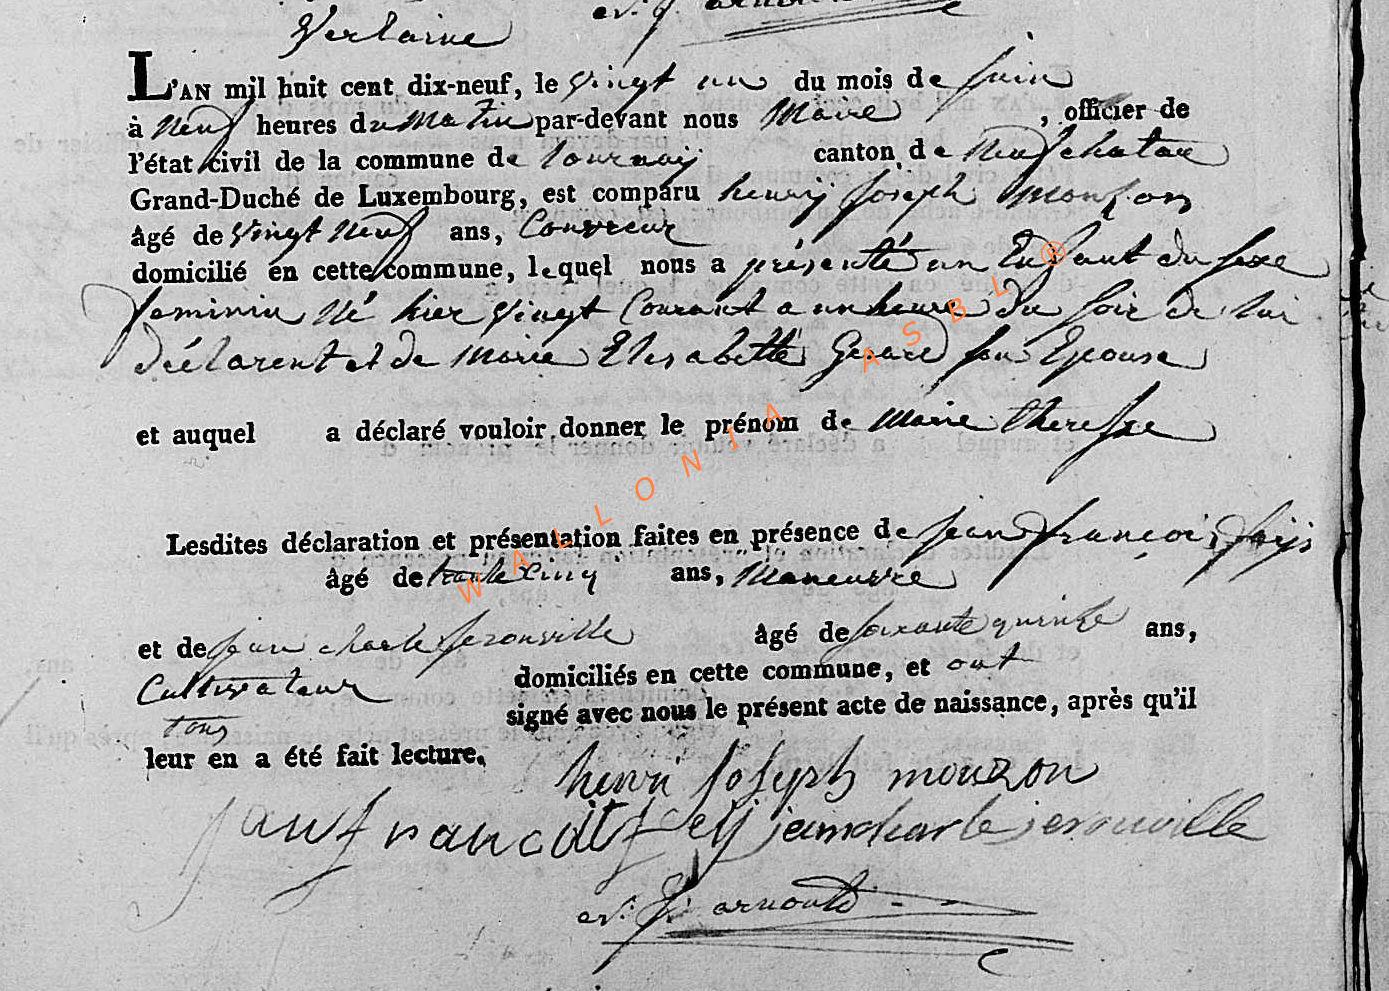 Verlaine
L'AN mil huit cent dix-neuf, le vingt un du mois de juin
à neuf heures du matin par-devant nous Maire , officier de
l'état civil de la commune de tournaÿ canton de neufchatau
Grand-Duché de Luxembourg, est comparu henrÿ Joseph Monson
âgé de vingt neuf ans, Couvreur
domicilié en cette commune, lequel nous a présenté un Enfant du sexe
feminin né hier vingt Courant a un heure du soir de lui
déclarent et de Marie Elisabette Gerard son Epouse
et auquel a déclaré vouloir donner le prénom de Marie theresse
Lesdites déclaration et présentation faites en présence de jean françois
âgé de trente Cinq ans, Maneuvre
et de jean charle Jerouville âgé de soixante quinze ans,
Cultivateur domiciliés en cette commune, et ont
tous signé avec nous le présent acte de naissance, après qu'il
leur en a été fait lecture.
henri Joseph mouzon
jean francois jean charle jerouville
arnould
WALLONIA ASBL ®